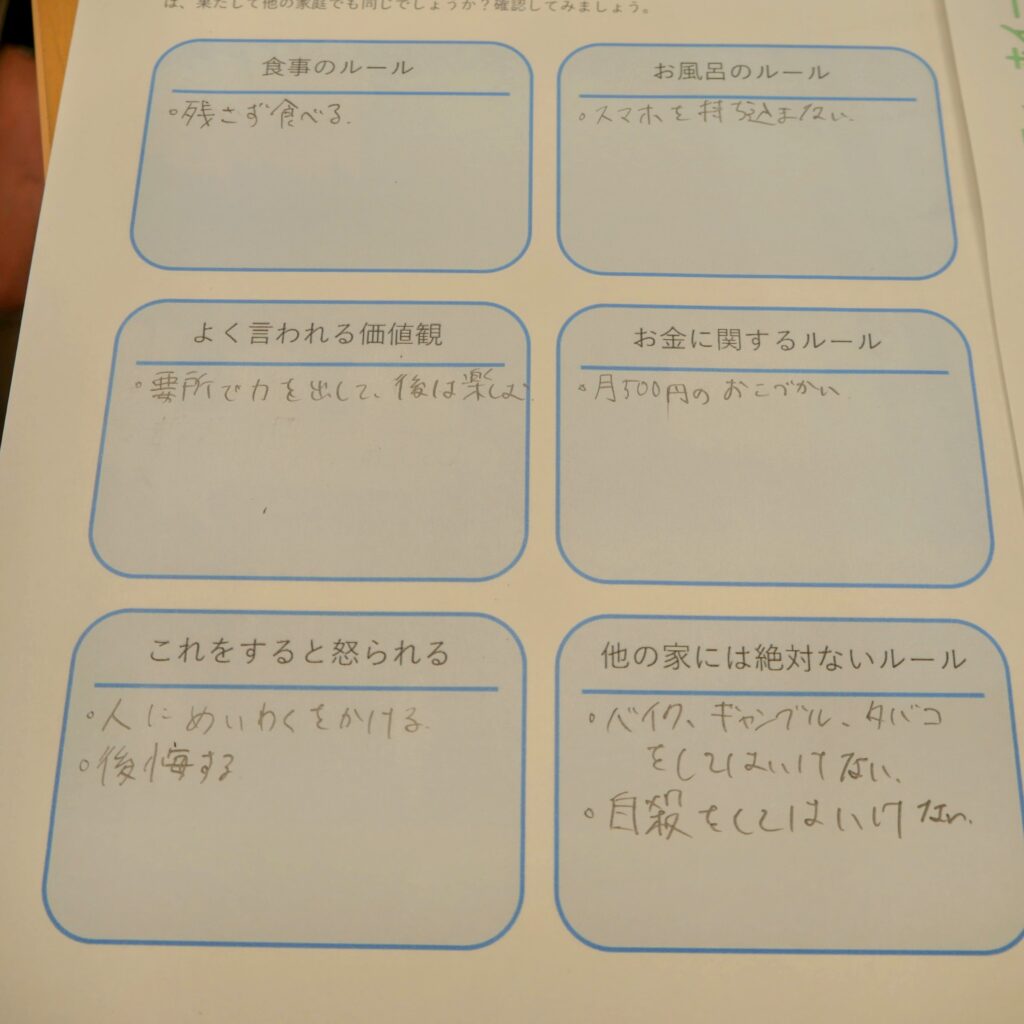 は、果たして他の家庭でも同じでしょうか？確認してみましょう。
食事のルール
◦残さず食べる.
お風呂のルール
◦スマホを持ち込まない.
よく言われる価値観
◦要所で力を出して、後は楽しむ
お金に関するルール
◦月500円のおこづかい
これをすると怒られる
◦人にめいわくをかける.
◦後悔する
他の家には絶対ないルール
◦バイク、ギャンブル、タバコ
をしてはいけない.
◦自殺をしてはいけない.